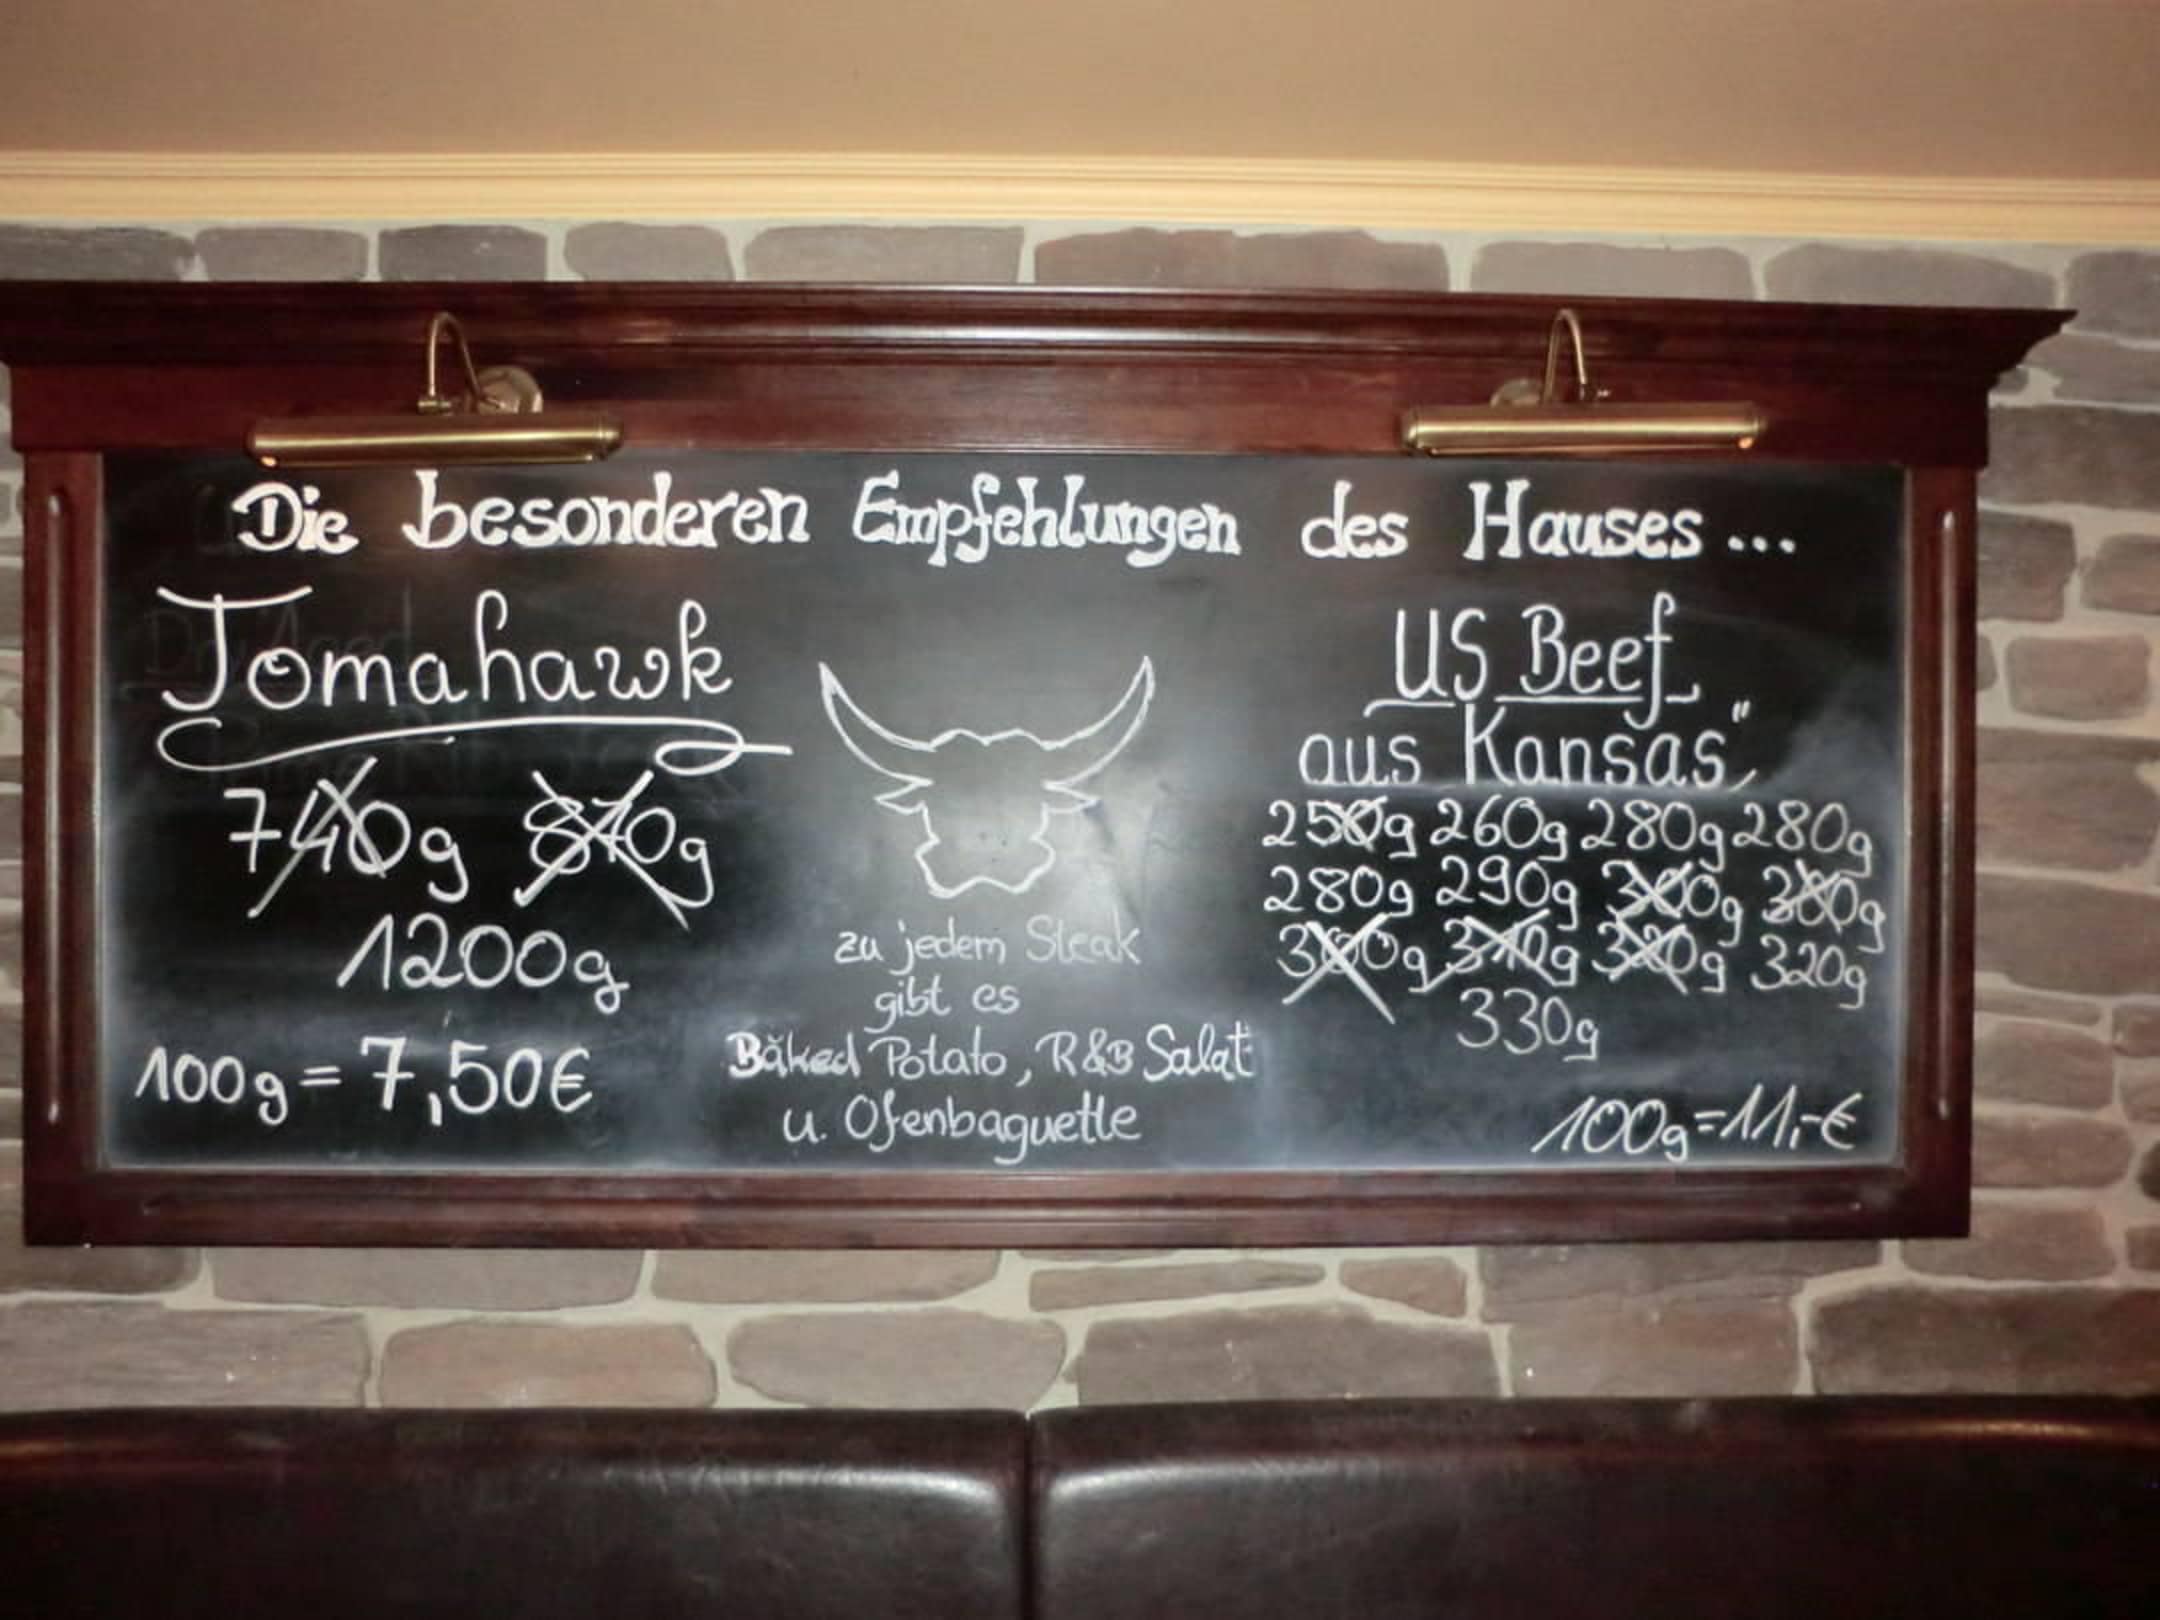 Die besonderen Empfehlungen des Hauses...
Tomahawk
740g 870g
1200g
100g = 7,50€
zu jedem Steak
gibt es
Baked Potato, R&B Salat
u. Ofenbaguette
US Beef
aus Kansas"
250g 260g 280g 280g
280g 290g 300g 300g
300g 310g 320g 320g
330g
100g=11,-€